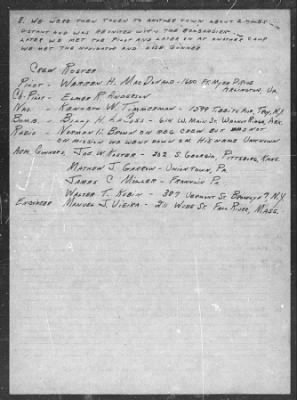 8. We were then taken to another town about 2 miles
distant and was reunited with the bombardier.
Later we met the pilot and later on at another camp
we met the navigator and nose gunner
Crew Roster
Pilot - Warren H. MacDonald - 1600 Ft. Myer Drive
Arlington, Va.
Co Pilot - Elmer R. Anderson
Nav. - Kenneth W. Timmerman - 1599 Tibbits Ave, Troy, N.Y.
Bomb. - Billy H. - 614 W. Main St. Walnut Ridge, Ark.
Radio - Norman L. Bown on reg crew but was not
on mission we went down on. His name unknown
Aer. Gunner. Joe W. Koster - 202 S. Georgia, Pittsburg, Kans.
Mathew J. - Uniontown, Pa
James C. Miller - Franklin Pa
Walter T. Rubin - 387 Vermont St. Brooklyn 7, N.Y
Engineer Manuel J. Vieira - 211 St. Fall River, Mass.